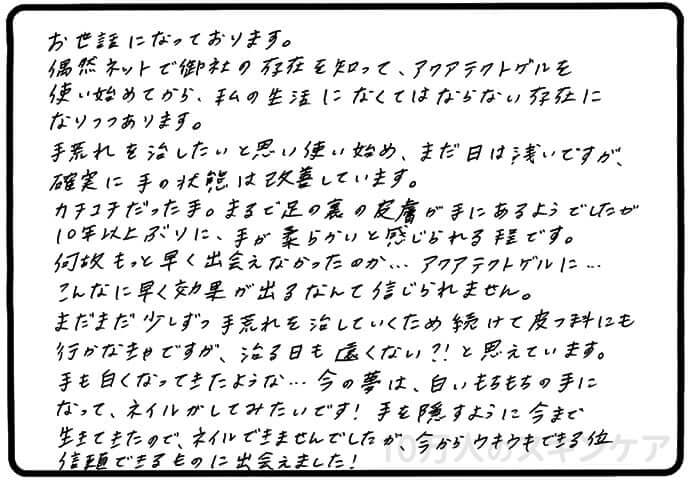 お世話になっております。
偶然ネットで御社の存在を知って、アクアテクトゲルを
使い始めてから、私の生活になくてはならない存在に
なりつつあります。
手荒れを治したいと思い使い始め、まだ日は浅いですが、
確実に手の状態は改善しています。
カチコチだった手。まるで足の裏の皮膚が手にあるようでしたが
10年以上ぶりに、手が柔らかいと感じられる程です。
何故もっと早く出会えなかったのか…アクアテクトゲルに…
こんなに早く効果が出るなんて信じられません。
まだまだ少しずつ手荒れを治していくため続けて皮フ科にも
行かなきゃですが、治る日も遠くない?!と思えています。
手も白くなってきたような…今の夢は、白いもちもちの手に
なって、ネイルがしてみたいです!手を隠すように今まで
生きてきたので、ネイルできませんでしたが、今からウキウキできる位
信頼できるものに出会えました!
10万人のスキンケア